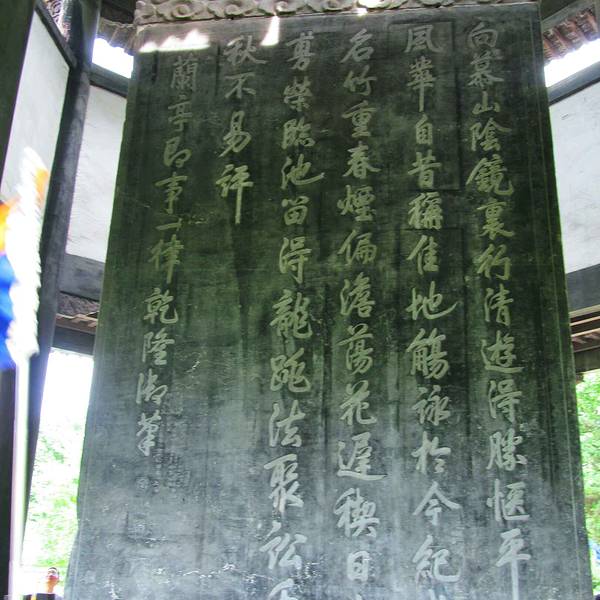 向慕山陰鏡裏行清遊得勝愜平
風華自昔稱佳地觴詠於今紀
名竹重春煙偏澹蕩花遲禊日
旉榮臨池留得龍跳法聚訟
秋不易評
蘭亭即事一律 乾隆御筆